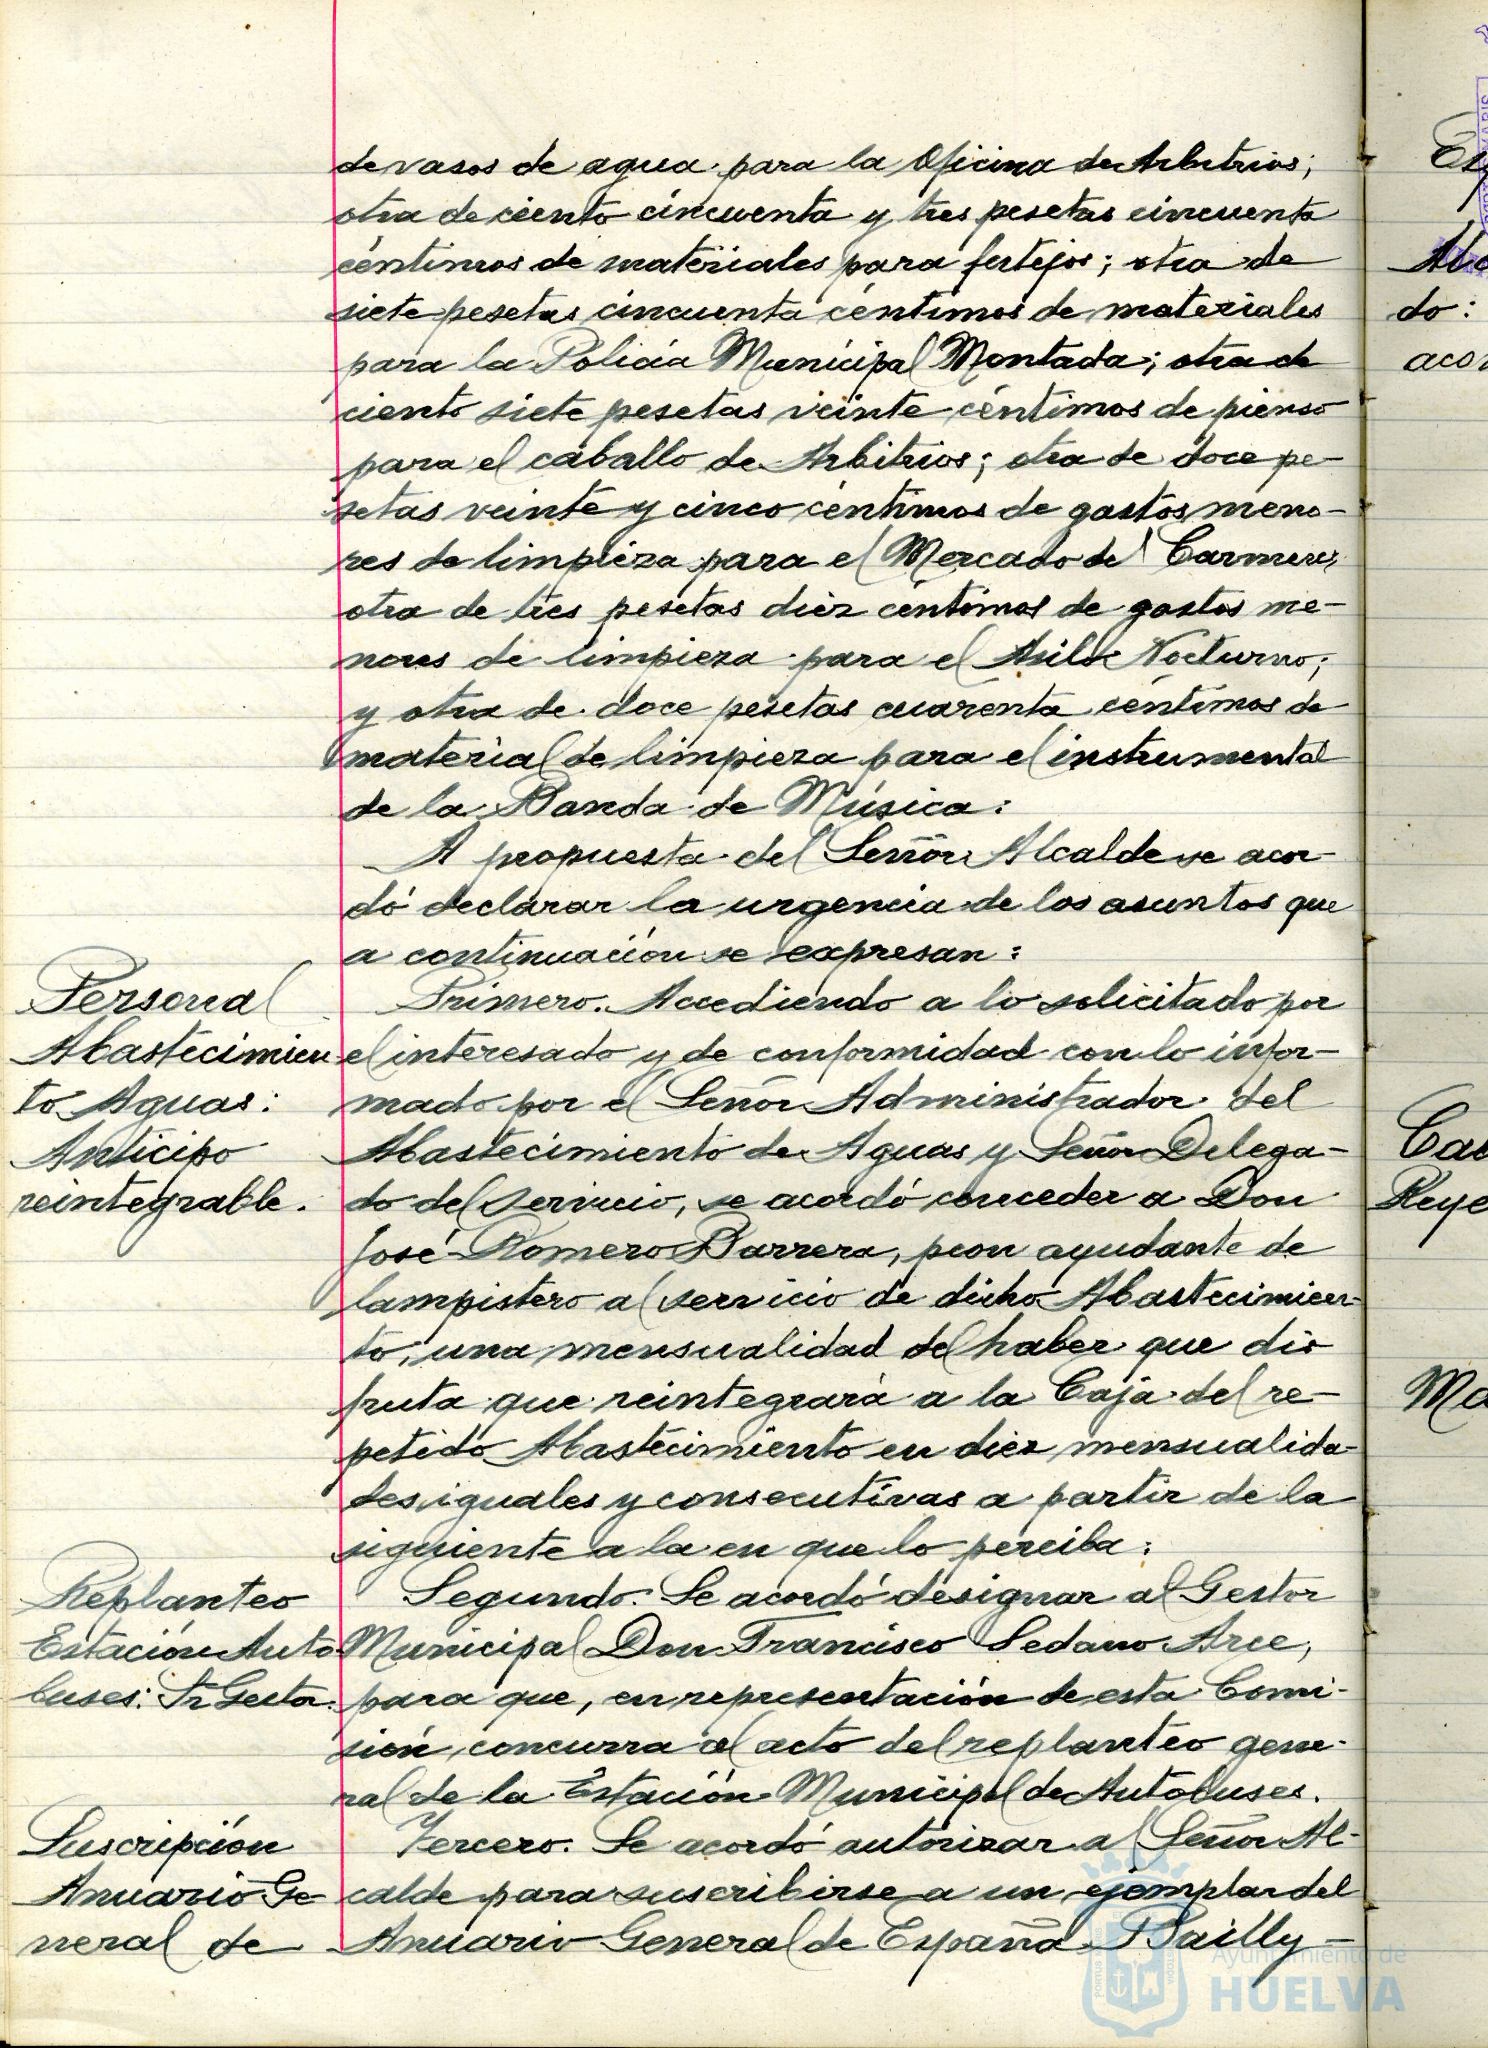 de vasos de agua para la Oficina de Arbitrios;
otra de ciento cincuenta y tres pesetas cincuenta
céntimos de materiales para festejos; otra de
siete pesetas cincuenta céntimos de materiales
para la Policía Municipal Montada; otra de
ciento siete pesetas veinte céntimos de pienso
para el caballo de Arbitrios; otra de doce pe-
setas veinte y cinco céntimos de gastos meno-
res de limpieza para el Mercado del Carmen;
otra de tres pesetas diez céntimos de gastos me-
nores de limpieza para el Asilo Nocturno;
y otra de doce pesetas cuarenta céntimos de
material de limpieza para el instrumental
de la Banda de Música.
A propuesta del Señor Alcalde se acor-
dó declarar la urgencia de los asuntos que
a continuación se expresan:
Personal
Abastecimien
to Aguas:
Anticipo
reintegrable.
Primero. Accediendo a lo solicitado por
el interesado y de conformidad con lo infor-
mado por el Señor Administrador del
Abastecimiento de Aguas y Señor Delega-
do del Servicio, se acordó conceder a Don
José Romero Barrera, peon ayudante de
lampistero al servicio de dicho Abastecimien-
to, una mensualidad del haber que dis
fruta que reintegrará a la Caja del re-
petido Abastecimiento en diez mensualida-
des iguales y consecutivas a partir de la
siguiente a la en que lo perciba.
Replanteo
Estación Auto
buses: Sr Gestor
Segundo. Se acordó designar al Gestor
Municipal Don Francisco Sedano Arce,
para que, en representación de esta Comi-
sión, concurra al acto del replanteo gene-
ral de la Estación Municipal de Autobuses.
Suscripción
Anuario Ge
neral de
Tercero. Se acordó autorizar al Señor Al-
calde para suscribirse a un ejemplar del
Anuario General de España Bailly-
do:
Ayuntamiento de
HUELVA